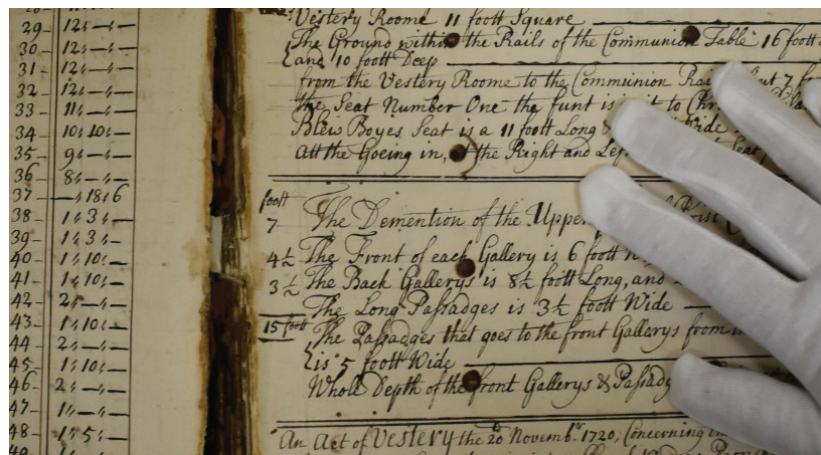 29- 12„-„-
30- 12„-„-
31- 12„-„-
32- 12„-„-
33- 11„-„-
34 10„10„-
35- 9„-„-
36 8„-„-
37 -„18„6
38- 1„3„-
39- 1„3„-
40- 1„10„-
41- 1„10„-
42 2„-„-
43- 1„10„-
44 2„-„-
45- 1„10„-
46- 2„-„-
47- 1„-„-
48- 1„5„-
Vestery Roome 11 foott Square
The Ground within the Rails of the Communion Table 16 foott
and 10 foott Deep
from the Vestery Roome to the Communion 7
the Seat Number One the funt is to
Bleis Boyes Seat is a 11 foott Long & Wide
att the Goeing in, the Right and
foott
7 The Demention of the
4½ The Front of each Gallery is 6 foott
3½ The Back Gallerys is 8½ foott Long, and
The Long Passadges is 3½ foott Wide
15 foott The Passadges that goes to the front Gallarys from
is 5 foott Wide
Whole Depth of the front Gallerys &
An Act of Vestery the 20 Novembr. 1720, Concerning